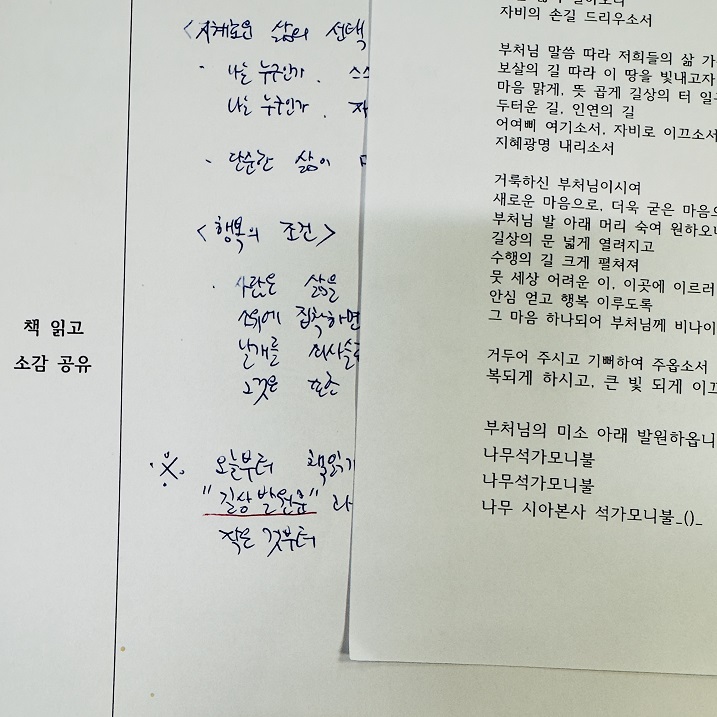 책 읽고
소감 공유
<지혜로운 삶의 선택
· 나는 누구인가.
나는 누구인가.
· 단순한 삶이
<행복의 조건>
· 사람은 삶을
위에 집착하면
날개를
그것은
※ 오늘부터 책읽기
"길상발원문"
작은 것부터
자비의 손길 드리우소서
부처님 말씀 따라 저희들의 삶
보살의 길 따라 이 땅을 빛내고자
마음 맑게, 뜻 곱게 길상의 터
두터운 길, 인연의 길
어여삐 여기소서, 자비로 이끄소서
지혜광명 내리소서
거룩하신 부처님이시여
새로운 마음으로, 더욱 굳은 마음으
부처님 발 아래 머리 숙여 원하오니
길상의 문 넓게 열려지고
수행의 길 크게 펼쳐져
뭇 세상 어려운 이, 이곳에 이르러
안심 얻고 행복 이루도록
그 마음 하나되어 부처님께 비나이
거두어 주시고 기뻐하여 주옵소서
복되게 하시고, 큰 빛 되게
부처님의 미소 아래 발원하옵니
나무석가모니불
나무석가모니불
나무 시아본사 석가모니불_()_